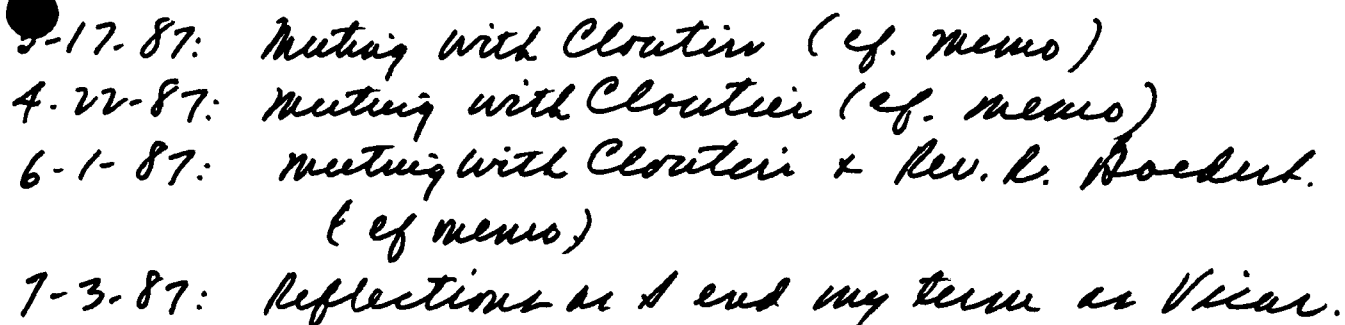 3-17-87: Meeting with Cloutier (cf. memo)
4-22-87: Meeting with Cloutier (cf. memo)
6-1-87: Meeting with Cloutier & Rev. R. Boedert.
(cf memo)
7-3-87: Reflections as I end my term as Vicar.